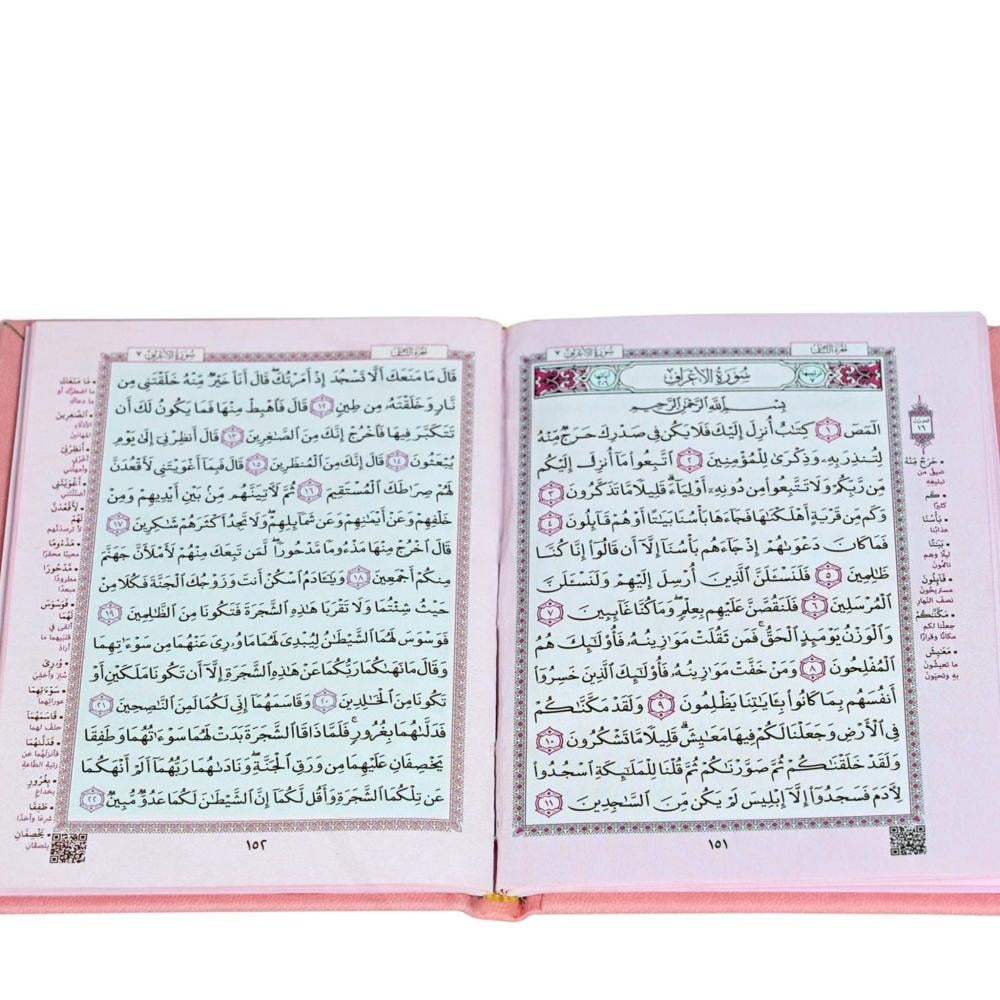 الجزء الثامن
سورة الأعراف ٧
سُورَةُ الأَعْرَافِ
بِسْمِ اللَّهِ الرَّحْمَٰنِ الرَّحِيمِ
الٓمٓصٓ ١ كِتَٰبٌ أُنزِلَ إِلَيْكَ فَلَا يَكُن فِى صَدْرِكَ حَرَجٌ مِّنْهُ
لِتُنذِرَ بِهِۦ وَذِكْرَىٰ لِلْمُؤْمِنِينَ ٢ ٱتَّبِعُوا۟ مَآ أُنزِلَ إِلَيْكُم
مِّن رَّبِّكُمْ وَلَا تَتَّبِعُوا۟ مِن دُونِهِۦٓ أَوْلِيَآءَ ۗ قَلِيلًا مَّا تَذَكَّرُونَ ٣
وَكَم مِّن قَرْيَةٍ أَهْلَكْنَٰهَا فَجَآءَهَا بَأْسُنَا بَيَٰتًا أَوْ هُمْ قَآئِلُونَ ٤
فَمَا كَانَ دَعْوَىٰهُمْ إِذْ جَآءَهُم بَأْسُنَآ إِلَّآ أَن قَالُوٓا۟ إِنَّا كُنَّا
ظَٰلِمِينَ ٥ فَلَنَسْـَٔلَنَّ ٱلَّذِينَ أُرْسِلَ إِلَيْهِمْ وَلَنَسْـَٔلَنَّ
ٱلْمُرْسَلِينَ ٦ فَلَنَقُصَّنَّ عَلَيْهِم بِعِلْمٍ ۖ وَمَا كُنَّا غَآئِبِينَ ٧
وَٱلْوَزْنُ يَوْمَئِذٍ ٱلْحَقُّ ۚ فَمَن ثَقُلَتْ مَوَٰزِينُهُۥ فَأُو۟لَٰٓئِكَ هُمُ
ٱلْمُفْلِحُونَ ٨ وَمَنْ خَفَّتْ مَوَٰزِينُهُۥ فَأُو۟لَٰٓئِكَ ٱلَّذِينَ خَسِرُوٓا۟
أَنفُسَهُم بِمَا كَانُوا۟ بِـَٔايَٰتِنَا يَظْلِمُونَ ٩ وَلَقَدْ مَكَّنَّٰكُمْ
فِى ٱلْأَرْضِ وَجَعَلْنَا لَكُمْ فِيهَا مَعَٰيِشَ ۗ قَلِيلًا مَّا تَشْكُرُونَ ١٠
وَلَقَدْ خَلَقْنَٰكُمْ ثُمَّ صَوَّرْنَٰكُمْ ثُمَّ قُلْنَا لِلْمَلَٰٓئِكَةِ ٱسْجُدُوا۟
لِـَٔادَمَ فَسَجَدُوٓا۟ إِلَّآ إِبْلِيسَ لَمْ يَكُن مِّنَ ٱلسَّٰجِدِينَ ١١
١٥١
١٦
• حَرَجٌ مِّنْهُ
ضيق من
تبليغه
• كَم
كثيرًا
• بَأْسُنَا
عذابنا
• بَيَٰتًا
ليلًا وهم
نائمون
• قَآئِلُونَ
مستريحون
نصف النهار
• مَكَّنَّٰكُمْ
جعلنا لكم
مكانًا وقرارًا
• مَعَٰيِشَ
ما تعيشون
به وتحيون
الجزء الثامن
سورة الأعراف ٧
قَالَ مَا مَنَعَكَ أَلَّا تَسْجُدَ إِذْ أَمَرْتُكَ ۖ قَالَ أَنَا۠ خَيْرٌ مِّنْهُ خَلَقْتَنِى مِن
نَّارٍ وَخَلَقْتَهُۥ مِن طِينٍ ١٢ قَالَ فَٱهْبِطْ مِنْهَا فَمَا يَكُونُ لَكَ أَن
تَتَكَبَّرَ فِيهَا فَٱخْرُجْ إِنَّكَ مِنَ ٱلصَّٰغِرِينَ ١٣ قَالَ أَنظِرْنِىٓ إِلَىٰ يَوْمِ
يُبْعَثُونَ ١٤ قَالَ إِنَّكَ مِنَ ٱلْمُنظَرِينَ ١٥ قَالَ فَبِمَآ أَغْوَيْتَنِى لَأَقْعُدَنَّ
لَهُمْ صِرَٰطَكَ ٱلْمُسْتَقِيمَ ١٦ ثُمَّ لَـَٔاتِيَنَّهُم مِّنۢ بَيْنِ أَيْدِيهِمْ وَمِنْ
خَلْفِهِمْ وَعَنْ أَيْمَٰنِهِمْ وَعَن شَمَآئِلِهِمْ ۖ وَلَا تَجِدُ أَكْثَرَهُمْ شَٰكِرِينَ ١٧
قَالَ ٱخْرُجْ مِنْهَا مَذْءُومًا مَّدْحُورًا ۖ لَّمَن تَبِعَكَ مِنْهُمْ لَأَمْلَأَنَّ جَهَنَّمَ
مِنكُمْ أَجْمَعِينَ ١٨ وَيَٰٓـَٔادَمُ ٱسْكُنْ أَنتَ وَزَوْجُكَ ٱلْجَنَّةَ فَكُلَا مِنْ
حَيْثُ شِئْتُمَا وَلَا تَقْرَبَا هَٰذِهِ ٱلشَّجَرَةَ فَتَكُونَا مِنَ ٱلظَّٰلِمِينَ ١٩
فَوَسْوَسَ لَهُمَا ٱلشَّيْطَٰنُ لِيُبْدِىَ لَهُمَا مَا وُۥرِىَ عَنْهُمَا مِن سَوْءَٰتِهِمَا
وَقَالَ مَا نَهَىٰكُمَا رَبُّكُمَا عَنْ هَٰذِهِ ٱلشَّجَرَةِ إِلَّآ أَن تَكُونَا مَلَكَيْنِ أَوْ
تَكُونَا مِنَ ٱلْخَٰلِدِينَ ٢٠ وَقَاسَمَهُمَآ إِنِّى لَكُمَا لَمِنَ ٱلنَّٰصِحِينَ ٢١
فَدَلَّىٰهُمَا بِغُرُورٍ ۚ فَلَمَّا ذَاقَا ٱلشَّجَرَةَ بَدَتْ لَهُمَا سَوْءَٰتُهُمَا وَطَفِقَا
يَخْصِفَانِ عَلَيْهِمَا مِن وَرَقِ ٱلْجَنَّةِ ۖ وَنَادَىٰهُمَا رَبُّهُمَآ أَلَمْ أَنْهَكُمَا
عَن تِلْكُمَا ٱلشَّجَرَةِ وَأَقُل لَّكُمَآ إِنَّ ٱلشَّيْطَٰنَ لَكُمَا عَدُوٌّ مُّبِينٌ ٢٢
١٥٢
• مَا مَنَعَكَ
ما اضطرك أو
ما دعاك
• ٱلصَّٰغِرِينَ
الأذلاء
المهانين
• أَنظِرْنِىٓ
أخرني
وأمهلني
• أَغْوَيْتَنِى
أضللتني
• لَأَقْعُدَنَّ
لَهُمْ
لأرصدنهم
• مَذْءُومًا
معيبًا محقرًا
• مَّدْحُورًا
مطرودًا
مبعدًا
• فَوَسْوَسَ
لَهُمَا
ألقى في
قلبيهما ما
أراد
• وُۥرِىَ
ستر وأخفي
• سَوْءَٰتِهِمَا
عوراتهما
• قَاسَمَهُمَآ
حلف لهما
• فَدَلَّىٰهُمَا
فأنزلهما عن
رتبة الطاعة
• بِغُرُورٍ
بخداع
• طَفِقَا
شرعا وأخذا
• يَخْصِفَانِ
يلصقان